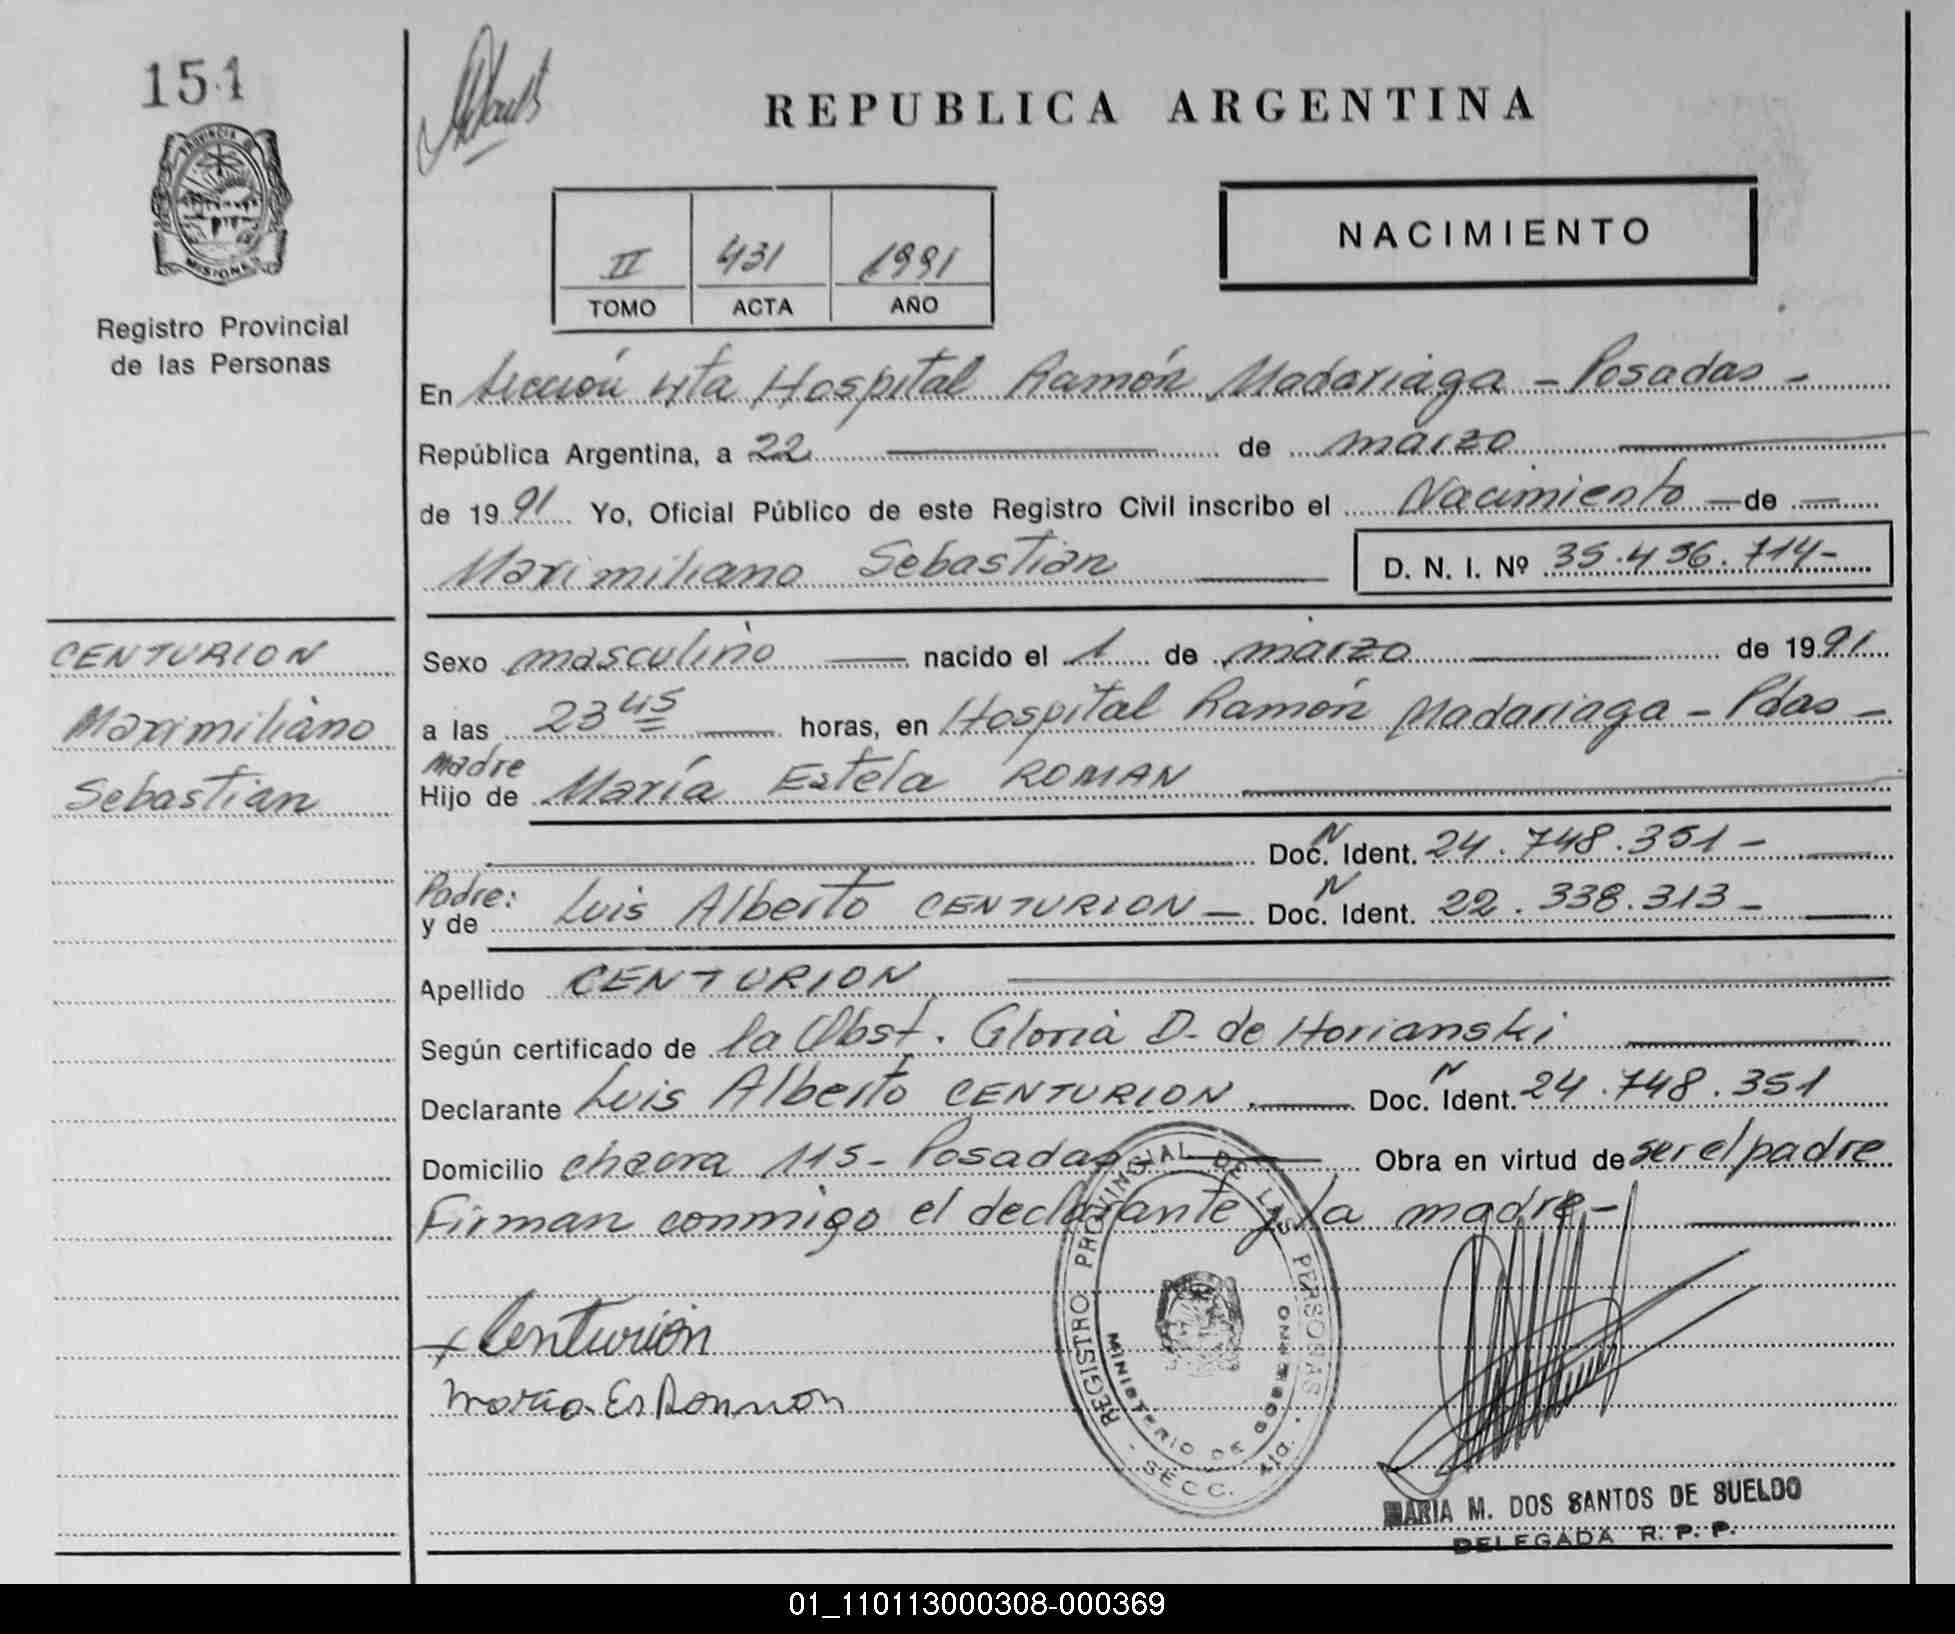 151
REPUBLICA ARGENTINA
PROVINCIA DE
MISIONES
Registro Provincial
de las Personas
NACIMIENTO
II 431 1991
TOMO ACTA AÑO
En Sección 4ta Hospital Ramón Madariaga - Posadas -
República Argentina, a 22 de marzo
de 1991 Yo, Oficial Público de este Registro Civil inscribo el Nacimiento de
Maximiliano Sebastian D. N. I. Nº 35.456.714-
CENTURION
Maximiliano
Sebastian
Sexo masculino nacido el 1 de marzo de 1991
a las 23 45 horas, en Hospital Ramón Madariaga - Pdas -
Madre
Hijo de María Estela ROMAN
Doc. N Ident. 24.748.351 -
Padre:
y de Luis Alberto CENTURION - Doc. N Ident. 22.338.313 -
Apellido CENTURION
Según certificado de la Obst. Gloria D. de Horianski
Declarante Luis Alberto CENTURION. Doc. N Ident. 24.748.351
Domicilio chacra 115 - Posadas Obra en virtud de ser el padre
Firman conmigo el declarante y la madre -
Centurión
REGISTRO PROVINCIAL DE LAS PERSONAS
MINISTERIO DE GOBIERNO
SECC. 4ta.
MARIA M. DOS SANTOS DE SUELDO
DELEGADA R. P. P.
01_110113000308-000369